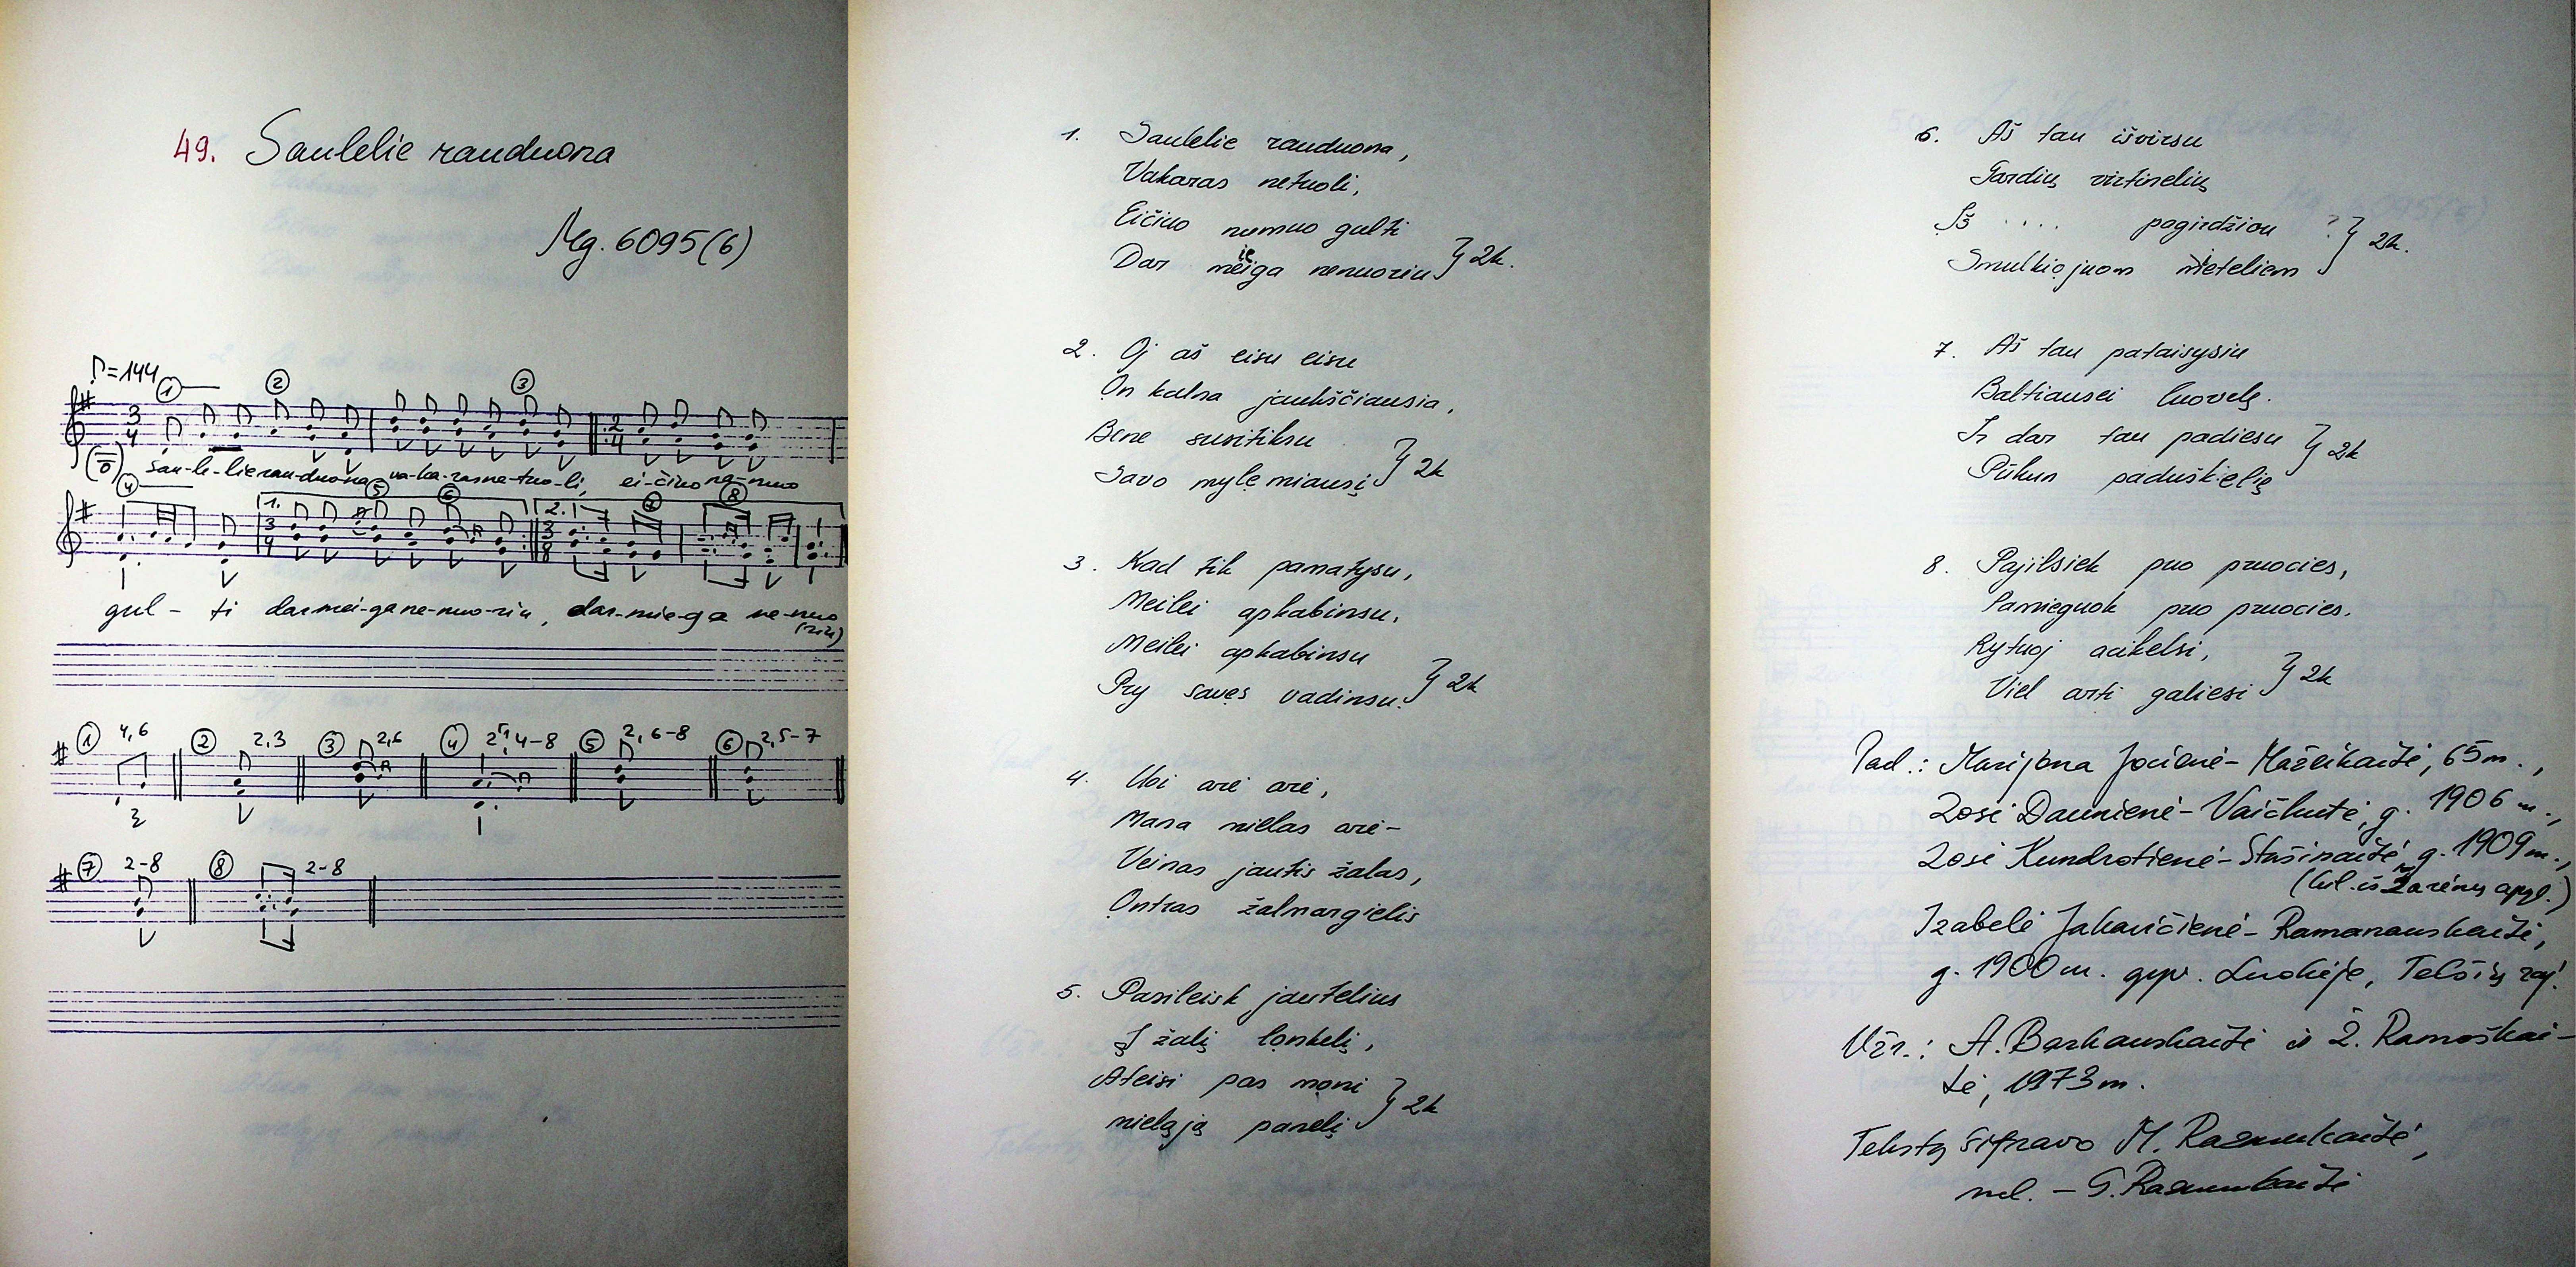 49. Saulelie rauduona
Mg. 6095(6)
♪=144
1
2
3
3
4
2
4
Sau-le-lie rau-duona va-ka-ras ne-tuo-li, ei-čiuo nu-muo
4
5
6
7
8
1.
2.
3
4
3
8
gul - ti dar mei-ga ne-nuo-riu, dar-mie-ga ne-nuo
(riu)
1 4,6
2 2,3
3 2,6
4 2, 4-8
5 2, 6-8
6 2,5-7
7 2-8
8 2-8
1. Saulelie rauduona,
Vakaras netuoli,
Eičiuo numuo gulti
ie
Dar meiga nenuoriu } 2k.
2. Oj aš eisu eisu
On kalna jaukščiausia,
Bene susitiksu
Savo mylemiausį } 2k
3. Kad tik pamatysu,
Meilei apkabinsu,
Meilei apkabinsu
Pry savęs vadinsu. } 2k
4. Uoi arė arė,
Mana mielas arė-
Veinas jautis žalas,
Ontras žalmargielis
5. Pasileisk jautelius
Į žalį lonkelį,
Ateisi pas moni
mieląją panelį } 2k
6. Aš tau išvirsu
Gardių virtinelių
Iš .... pagirdžiou ? } 2k.
Smulkiojuom mieteliem
7. Aš tau pataisysiu
Baltiausei luovelę.
Ir dar tau padiesu
Pūkun paduškielię } 2k
8. Pajilsiek puo pruocies,
Pamieguok puo pruocies.
Rytuoj acikelsi,
Viel arti galiesi } 2k
Pad.: Marijona Jocienė-Mažeikaitė, 65 m.,
Zosė Daunienė-Vaičkutė, g. 1906 m.,
Zosė Kundrotienė-Stašinaitė, g. 1909 m.,
(kil. iš Žarėnų apyl.)
Izabelė Jakavičienė-Ramanauskaitė,
g. 1900 m. gyv. Luokėje, Telšių raj.
Užr.: A. Barkauskaitė ir Ž. Ramoškai-
tė, 1973 m.
Tekstą šifravo M. Razmukaitė,
mel. - G. Razmukaitė